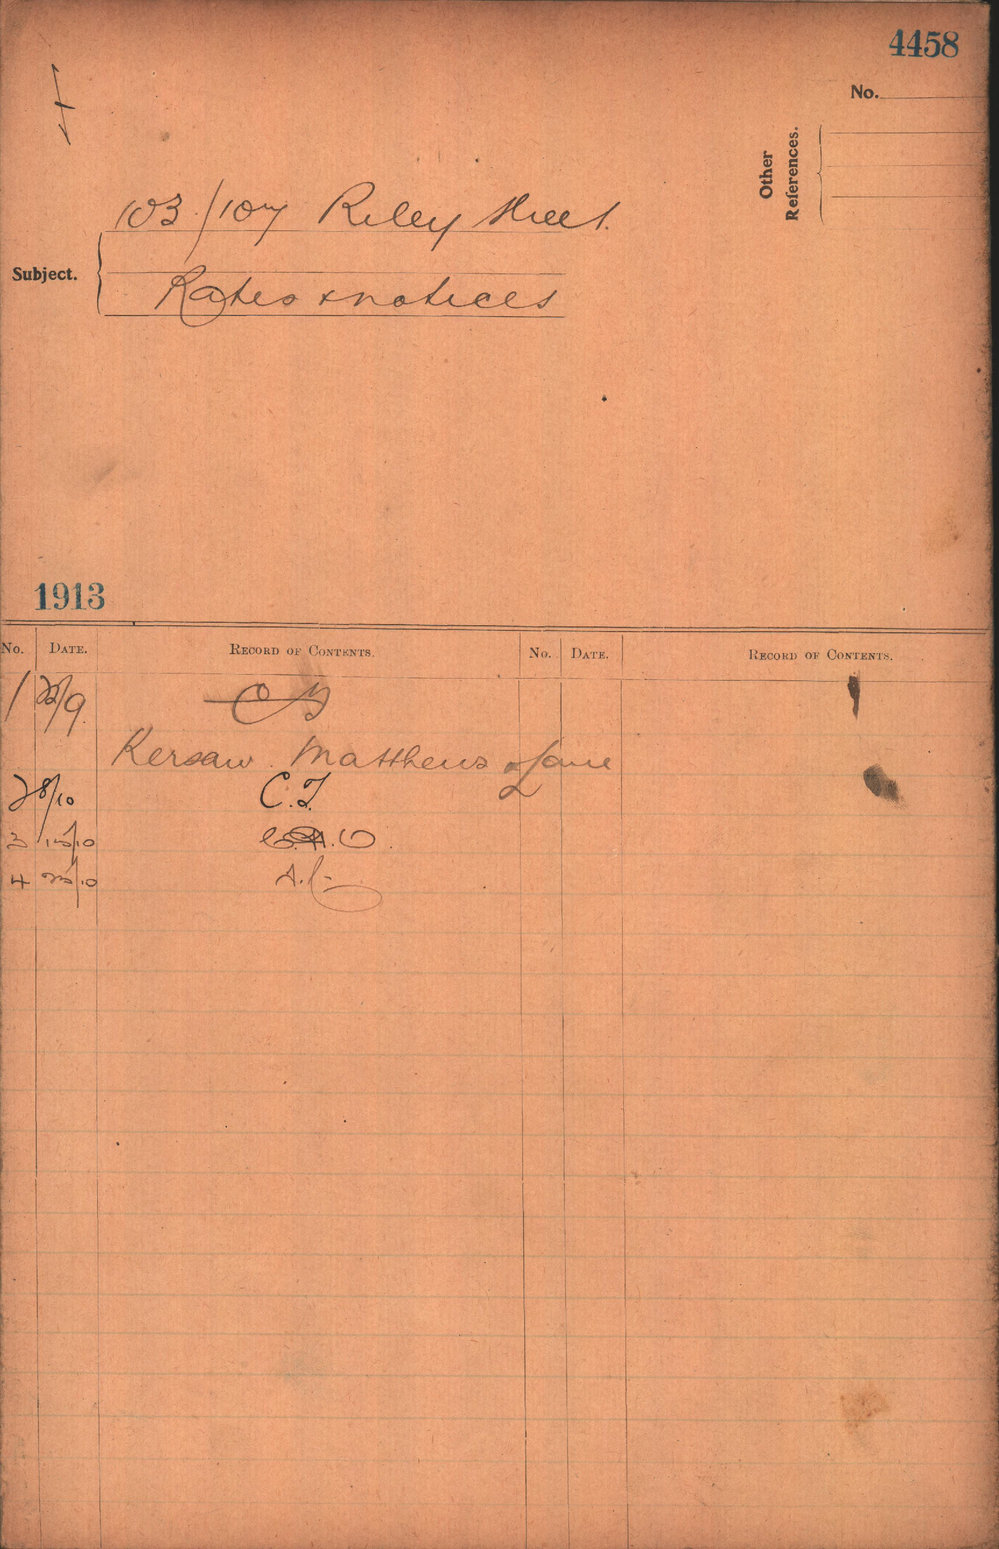 4458
No.
Other
References.
103/107 Riley Street.
Subject.
Rates & notices
1913
No. DATE. RECORD OF CONTENTS. No. DATE. RECORD OF CONTENTS.
1 25/9
Kersaw Matthews & Lane
2 8/10 C.T.
3 15/10
4 25/10